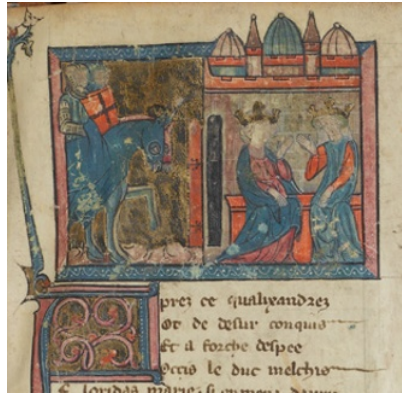 Aprez ce qualixandrez
Ot de desur conquis
Et a forche despee
Occis le duc melchis
E floridas marie si en mena